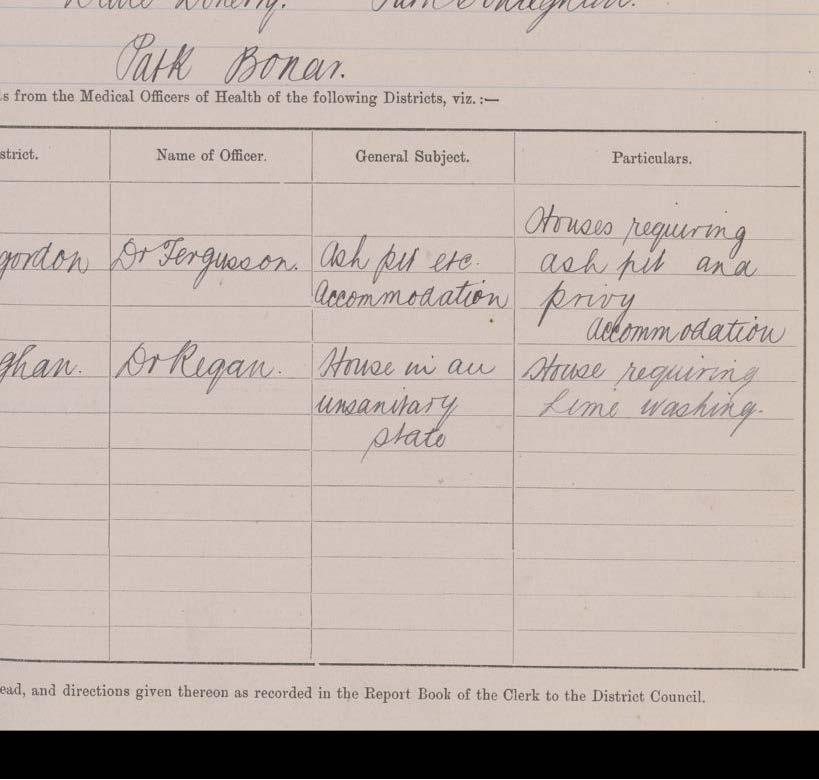 Doherty.
Patk Bonar.
s from the Medical Officers of Health of the following Districts, viz.:—
strict. Name of Officer. General Subject. Particulars.
Houses requiring
gordon Dr Fergusson. Ash pit etc. ash pit and
Accommodation privy
accommodation
ghan. Dr Regan. House in an House requiring
unsanitary Lime washing.
state
ead, and directions given thereon as recorded in the Report Book of the Clerk to the District Council.